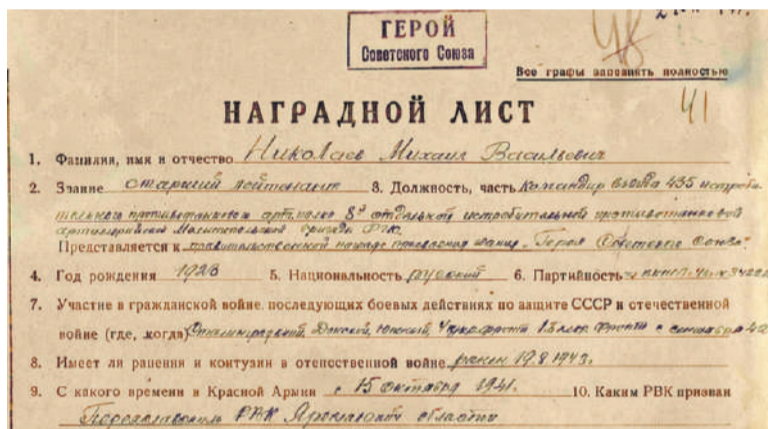 ГЕРОЙ
Советского Союза
Все графы заполнять полностью
НАГРАДНОЙ ЛИСТ
41
1. Фамилия, имя и отчество Николаев Михаил Васильевич
2. Звание старший лейтенант 3. Должность, часть Командир взвода 435 истреби
тельного противотанкового артполка 8й отдельной истребительной противотанковой
артиллерийской бригады РГК.
Представляется к правительственной награде присвоения звания „Героя Советского Союза"
4. Год рождения 1923 5. Национальность русский 6. Партийность
7. Участие в гражданской войне, последующих боевых действиях по защите СССР и отечественной
войне (где, когда) Сталинградский, Донской, Южный, фронт с сентября 42
8. Имеет ли ранения и контузии в отечественной войне ранен 19.8.1943.
9. С какого времени в Красной Армии с 15 октября 1941. 10. Каким РВК призван
РВК Ярославской области